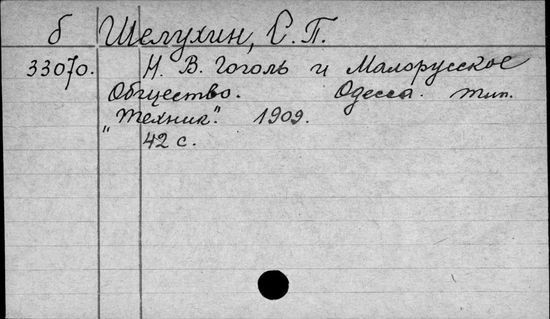 б Шелухин, С. П.
33070. Н. В. Гоголь и Малорусское
Общество. Одесса. тип.
„Техник". 1909.
42 с.